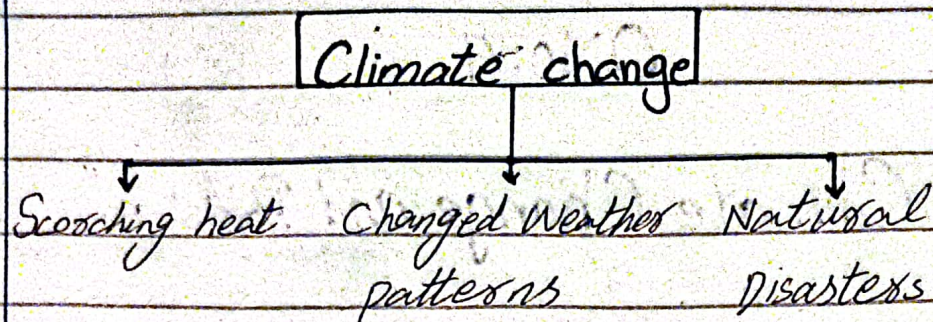 Climate change
Scorching heat Changed Weather Natural
patterns Disasters